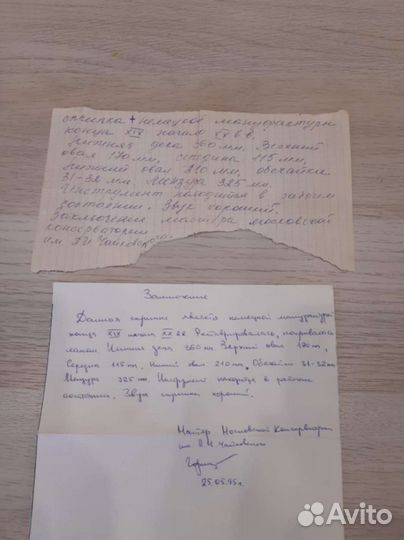 скрипка немецкой мануфактуры
конца XIX начало XX в.в.
Нижняя дека 360 мм. Верхний
овал 170 мм, середина 115 мм,
нижний овал 210 мм, обечайки
31-32 мм. Мензура 325 мм.
Инструмент находится в рабочем
состоянии. Звук хороший.
Заключение мастера московской
консерватории
им. П.И. Чайковского.
Заключение
Данная скрипка является немецкой мануфактуры
конца XIX начала XX вв Реставрировалась, покрывалась
лаком Нижняя дека 360 мм. Верхний овал 170 мм,
Середина 115 мм. Нижний овал 210 мм. Обечайки 31-32 мм
Мензура 325 мм. Инструмент находится в рабочем
состоянии. Звук скрипки хороший.
Мастер Московской Консерватории
им П И Чайковского
25.05.95 г.
Avito